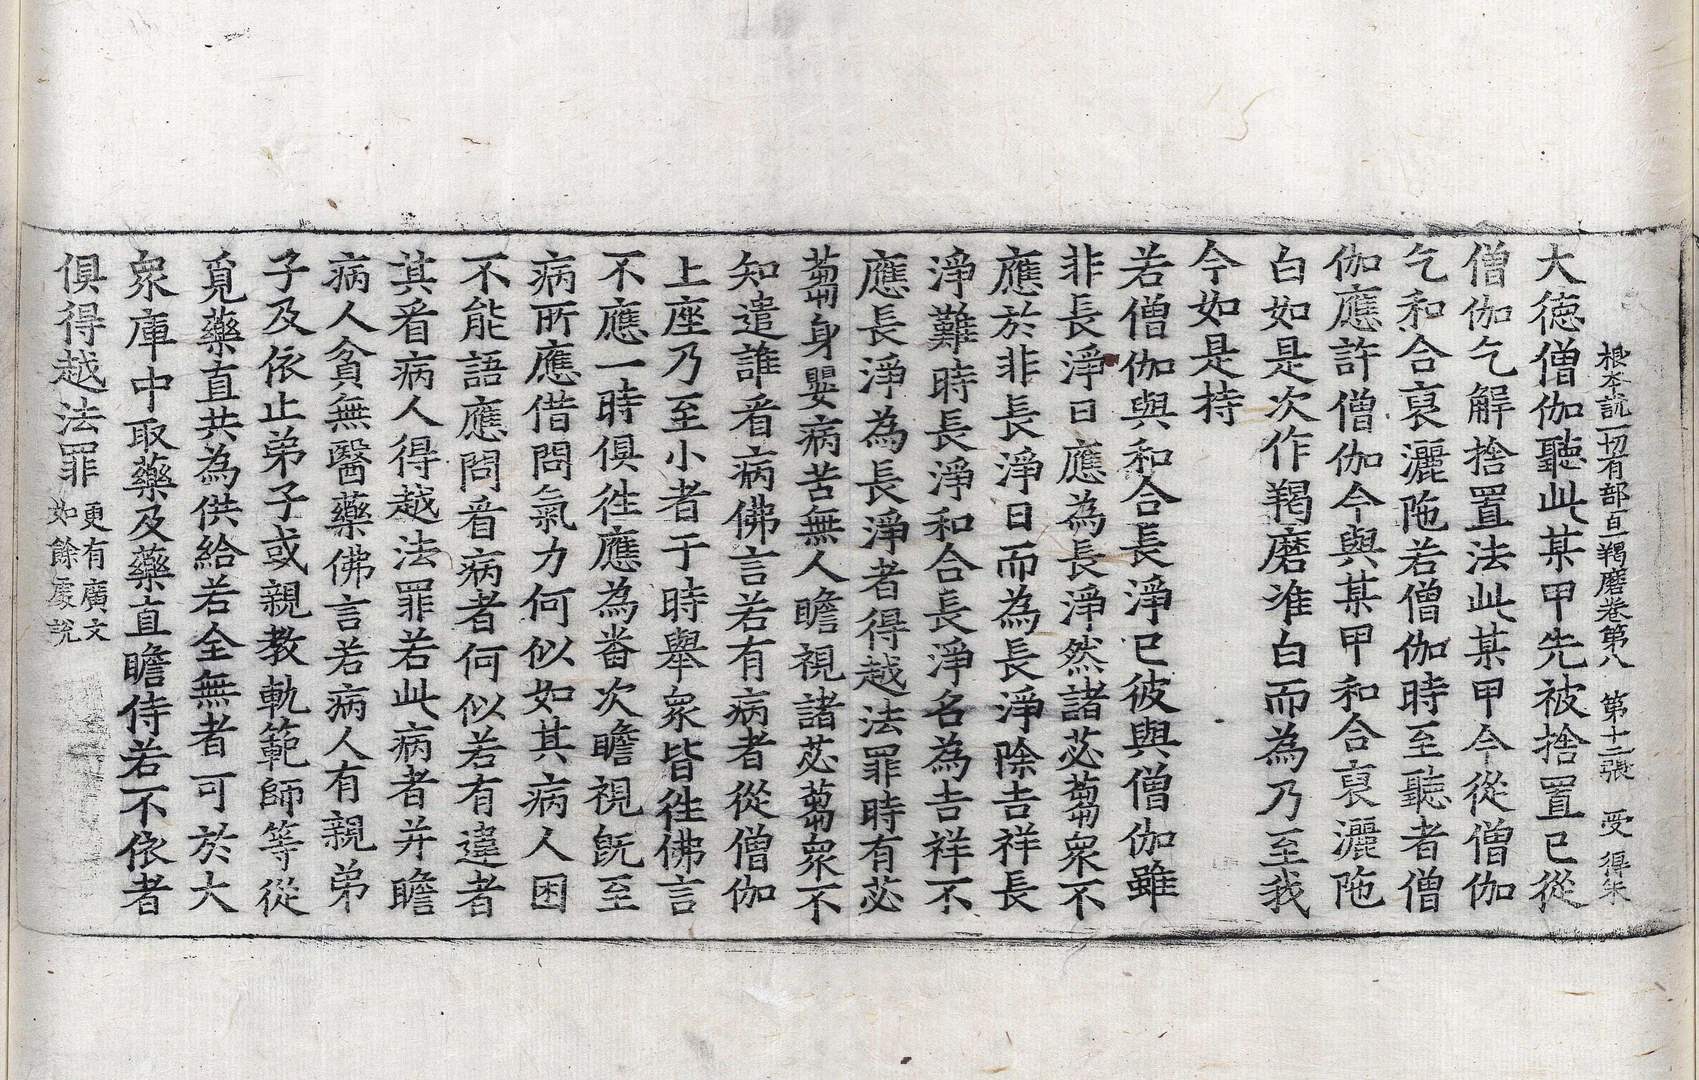 根本說一切有部百一羯磨卷第八 第十二張 受 得朱
大德僧伽聽此某甲先被捨置已從
僧伽乞解捨置法此某甲今從僧伽
乞和合裒灑陁若僧伽時至聽者僧
伽應許僧伽今與某甲和合裒灑陁
白如是次作羯磨准白而為乃至我
今如是持
若僧伽與和合長淨已彼與僧伽雖
非長淨日應為長淨然諸苾蒭衆不
應於非長淨日而為長淨除吉祥長
淨難時長淨和合長淨名為吉祥不
應長淨為長淨者得越法罪時有苾
蒭身嬰病苦無人瞻視諸苾蒭衆不
知遣誰看病佛言若有病者從僧伽
上座乃至小者于時舉衆皆徃佛言
不應一時俱徃應為番次瞻視旣至
病所應借問氣力何似如其病人困
不能語應問看病者何似若有違者
其看病人得越法罪若此病者并瞻
病人貧無醫藥佛言若病人有親弟
子及依止弟子或親教軌範師等從
覓藥直共為供給若全無者可於大
衆庫中取藥及藥直瞻侍若不依者
俱得越法罪 更有廣文
如餘處說